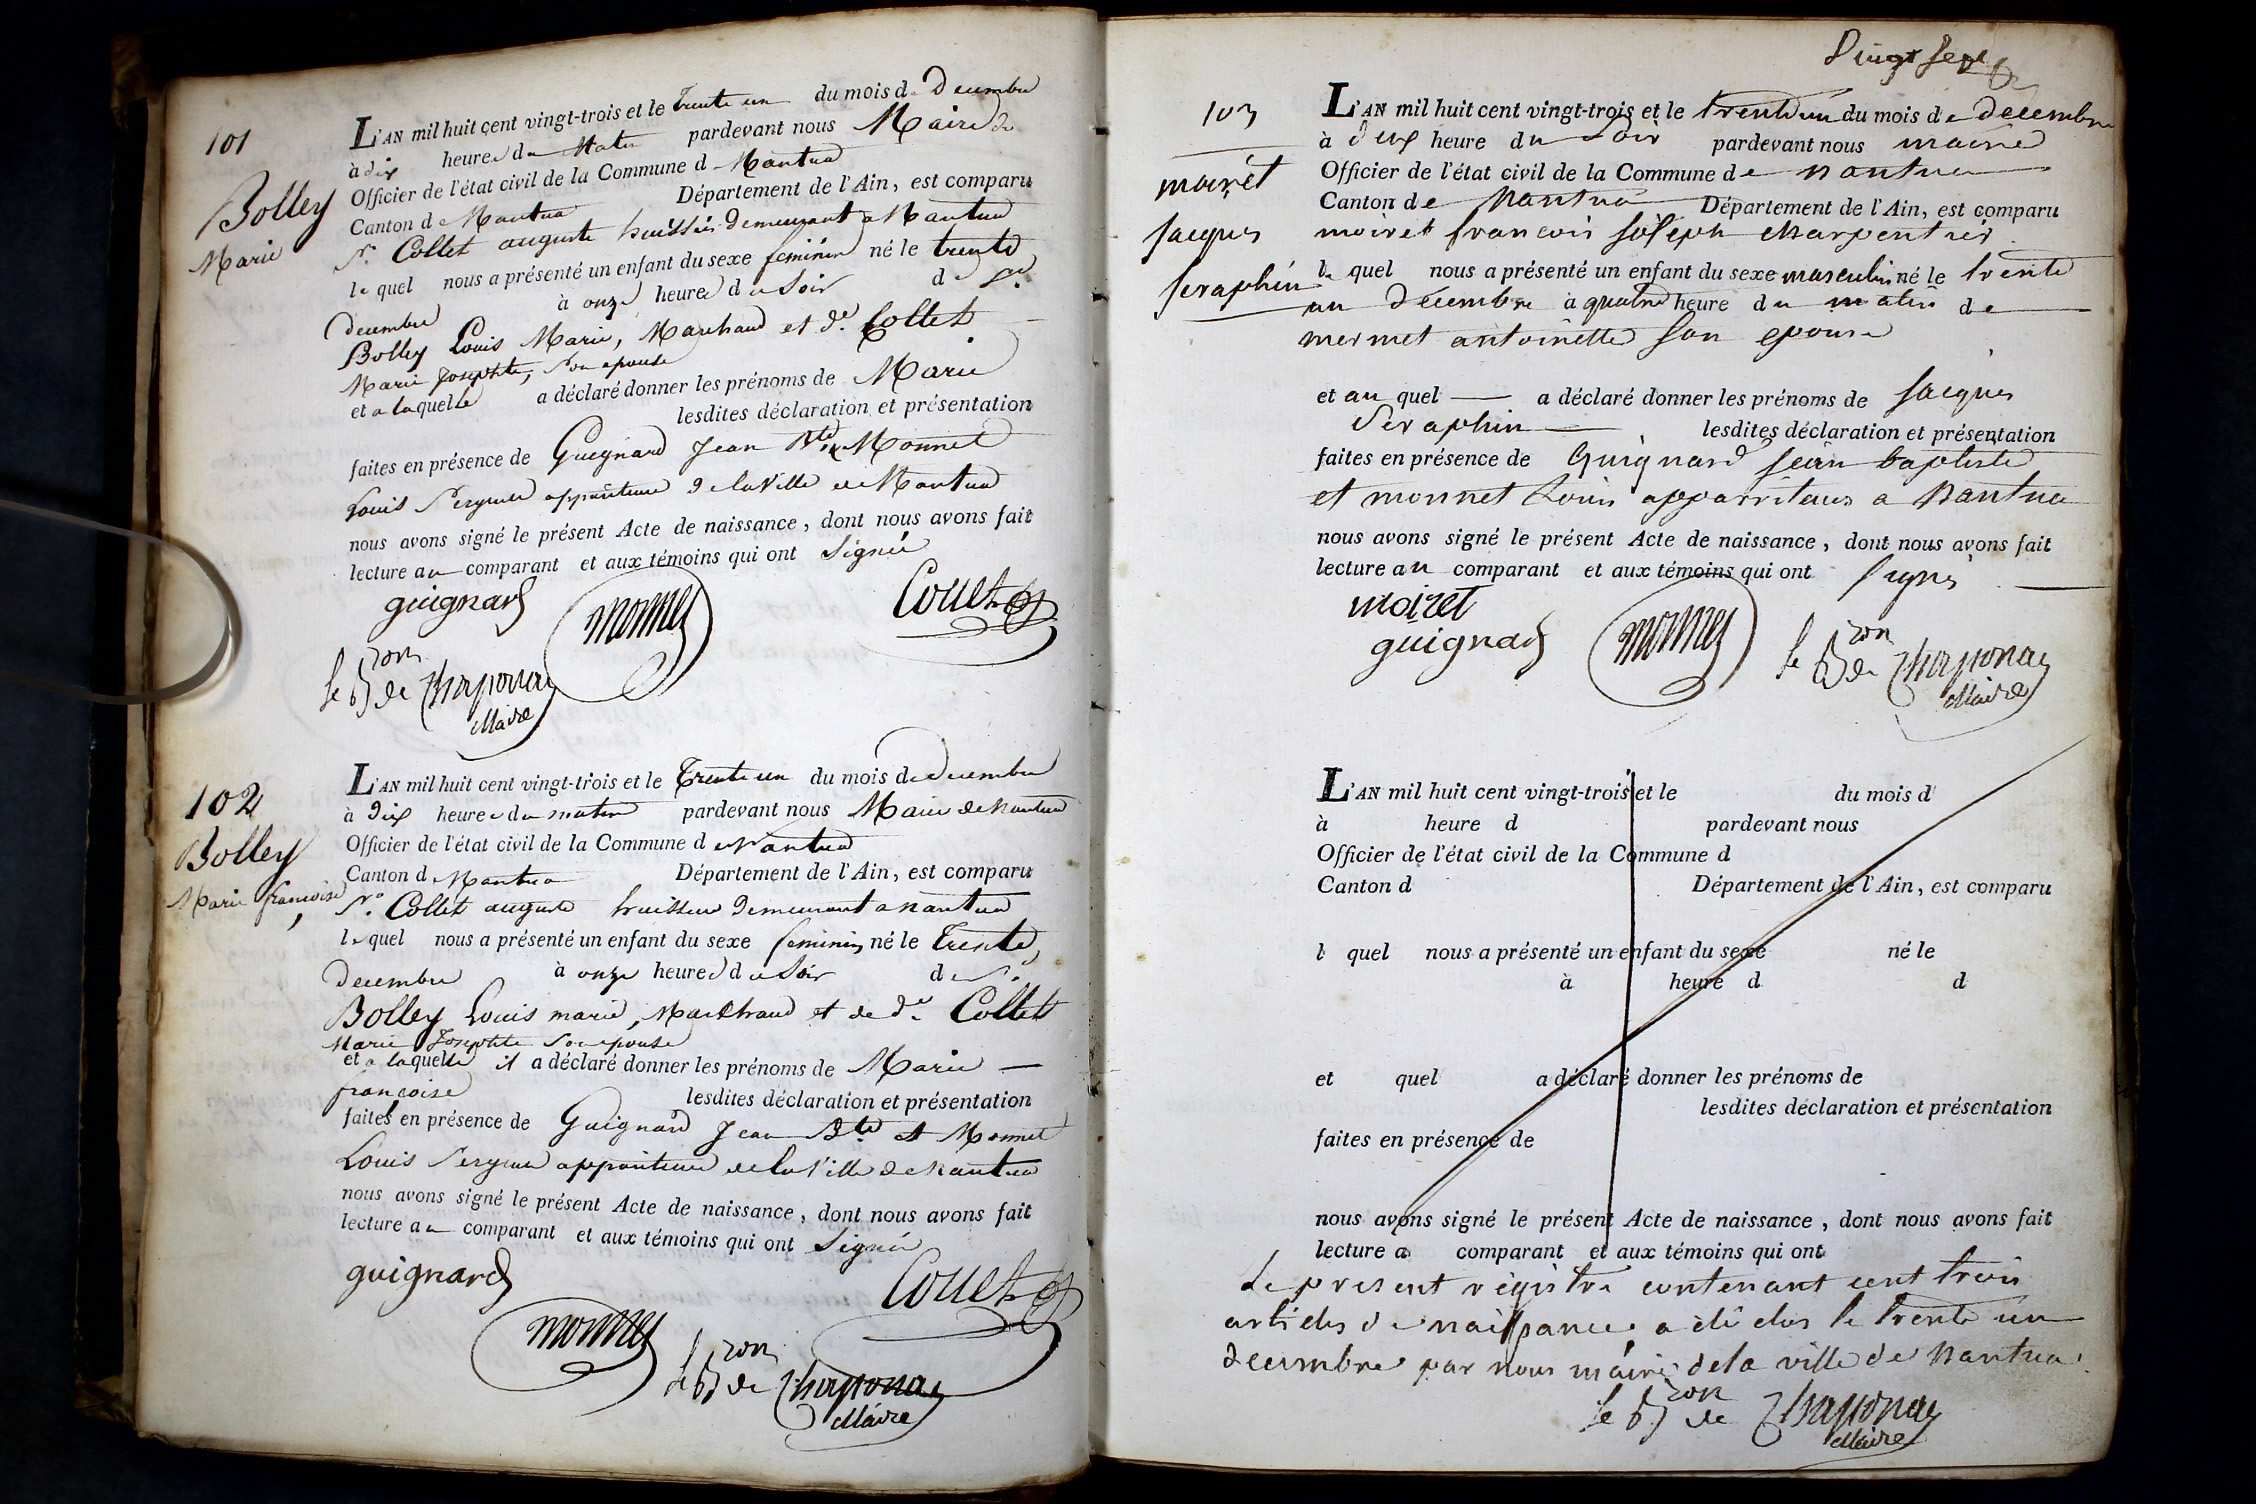 101
Bolley
Marie
L'AN mil huit cent vingt-trois et le Trente un du mois de Decembre
à dix heures du Matin pardevant nous Maire de
Officier de l'état civil de la Commune de Nantua
Canton de Nantua Département de l'Ain, est comparu
Sr. Collet auguste huissier demeurant a Nantua
le quel nous a présenté un enfant du sexe feminin né le trente
Decembre à onze heures du Soir de Sr.
Bolley Louis Marie, Marchand et de de. Collet
Marie Josephte, Son epouse
et a laquelle a déclaré donner les prénoms de Marie
lesdites déclaration et présentation
faites en présence de Guignard Jean Bte. et Monnet
Louis Sergents appariteurs de la Ville de Nantua
nous avons signé le présent Acte de naissance, dont nous avons fait
lecture au comparant et aux témoins qui ont Signé
guignard monnet Collet
le Bon de Chaponay
Maire
102
Bolley
Marie francoise
L'AN mil huit cent vingt-trois et le Trente un du mois de decembre
à Dix heures du matin pardevant nous Maire de Nantua
Officier de l'état civil de la Commune de Nantua
Canton de Nantua Département de l'Ain, est comparu
Sr. Collet auguste huissier demeurant a nantua
le quel nous a présenté un enfant du sexe feminin né le Trente
Decembre à onze heures du Soir de Sr.
Bolley Louis marie, Marchand et de de. Collet
Marie Josephte Son epouse
et a laquelle il a déclaré donner les prénoms de Marie
francoise lesdites déclaration et présentation
faites en présence de Guignard Jean Bte. et Monnet
Louis Sergents appariteurs de la Ville de Nantua
nous avons signé le présent Acte de naissance, dont nous avons fait
lecture au comparant et aux témoins qui ont Signé
guignard Collet
monnet
le Bon de Chaponay
Maire
Vingt Sept
103
moiret
jacques
seraphin
L'AN mil huit cent vingt-trois et le trente un du mois de decembre
à deux heure du Soir pardevant nous maire
Officier de l'état civil de la Commune de nantua
Canton de Nantua Département de l'Ain, est comparu
moiret francois joseph charpentier
le quel nous a présenté un enfant du sexe masculin né le trente
un decembre à quatre heure du matin de
mermet antoinette son epouse
et au quel a déclaré donner les prénoms de jacques
Seraphin lesdites déclaration et présentation
faites en présence de Guignard jean baptiste
et monnet Louis apparriteurs a Nantua
nous avons signé le présent Acte de naissance, dont nous avons fait
lecture au comparant et aux témoins qui ont signés
moiret
guignard monnet le Bon de Chaponay
Maire
L'AN mil huit cent vingt-trois et le du mois d
à heure d pardevant nous
Officier de l'état civil de la Commune d
Canton d Département de l'Ain, est comparu
l quel nous a présenté un enfant du sexe né le
à heure d d
et quel a déclaré donner les prénoms de
lesdites déclaration et présentation
faites en présence de
nous avons signé le présent Acte de naissance, dont nous avons fait
lecture a comparant et aux témoins qui ont
Le present registre contenant cent trois
articles de naissance a été clos le trente un
decembre par nous maire de la ville de Nantua
le Bon de Chaponay
Maire